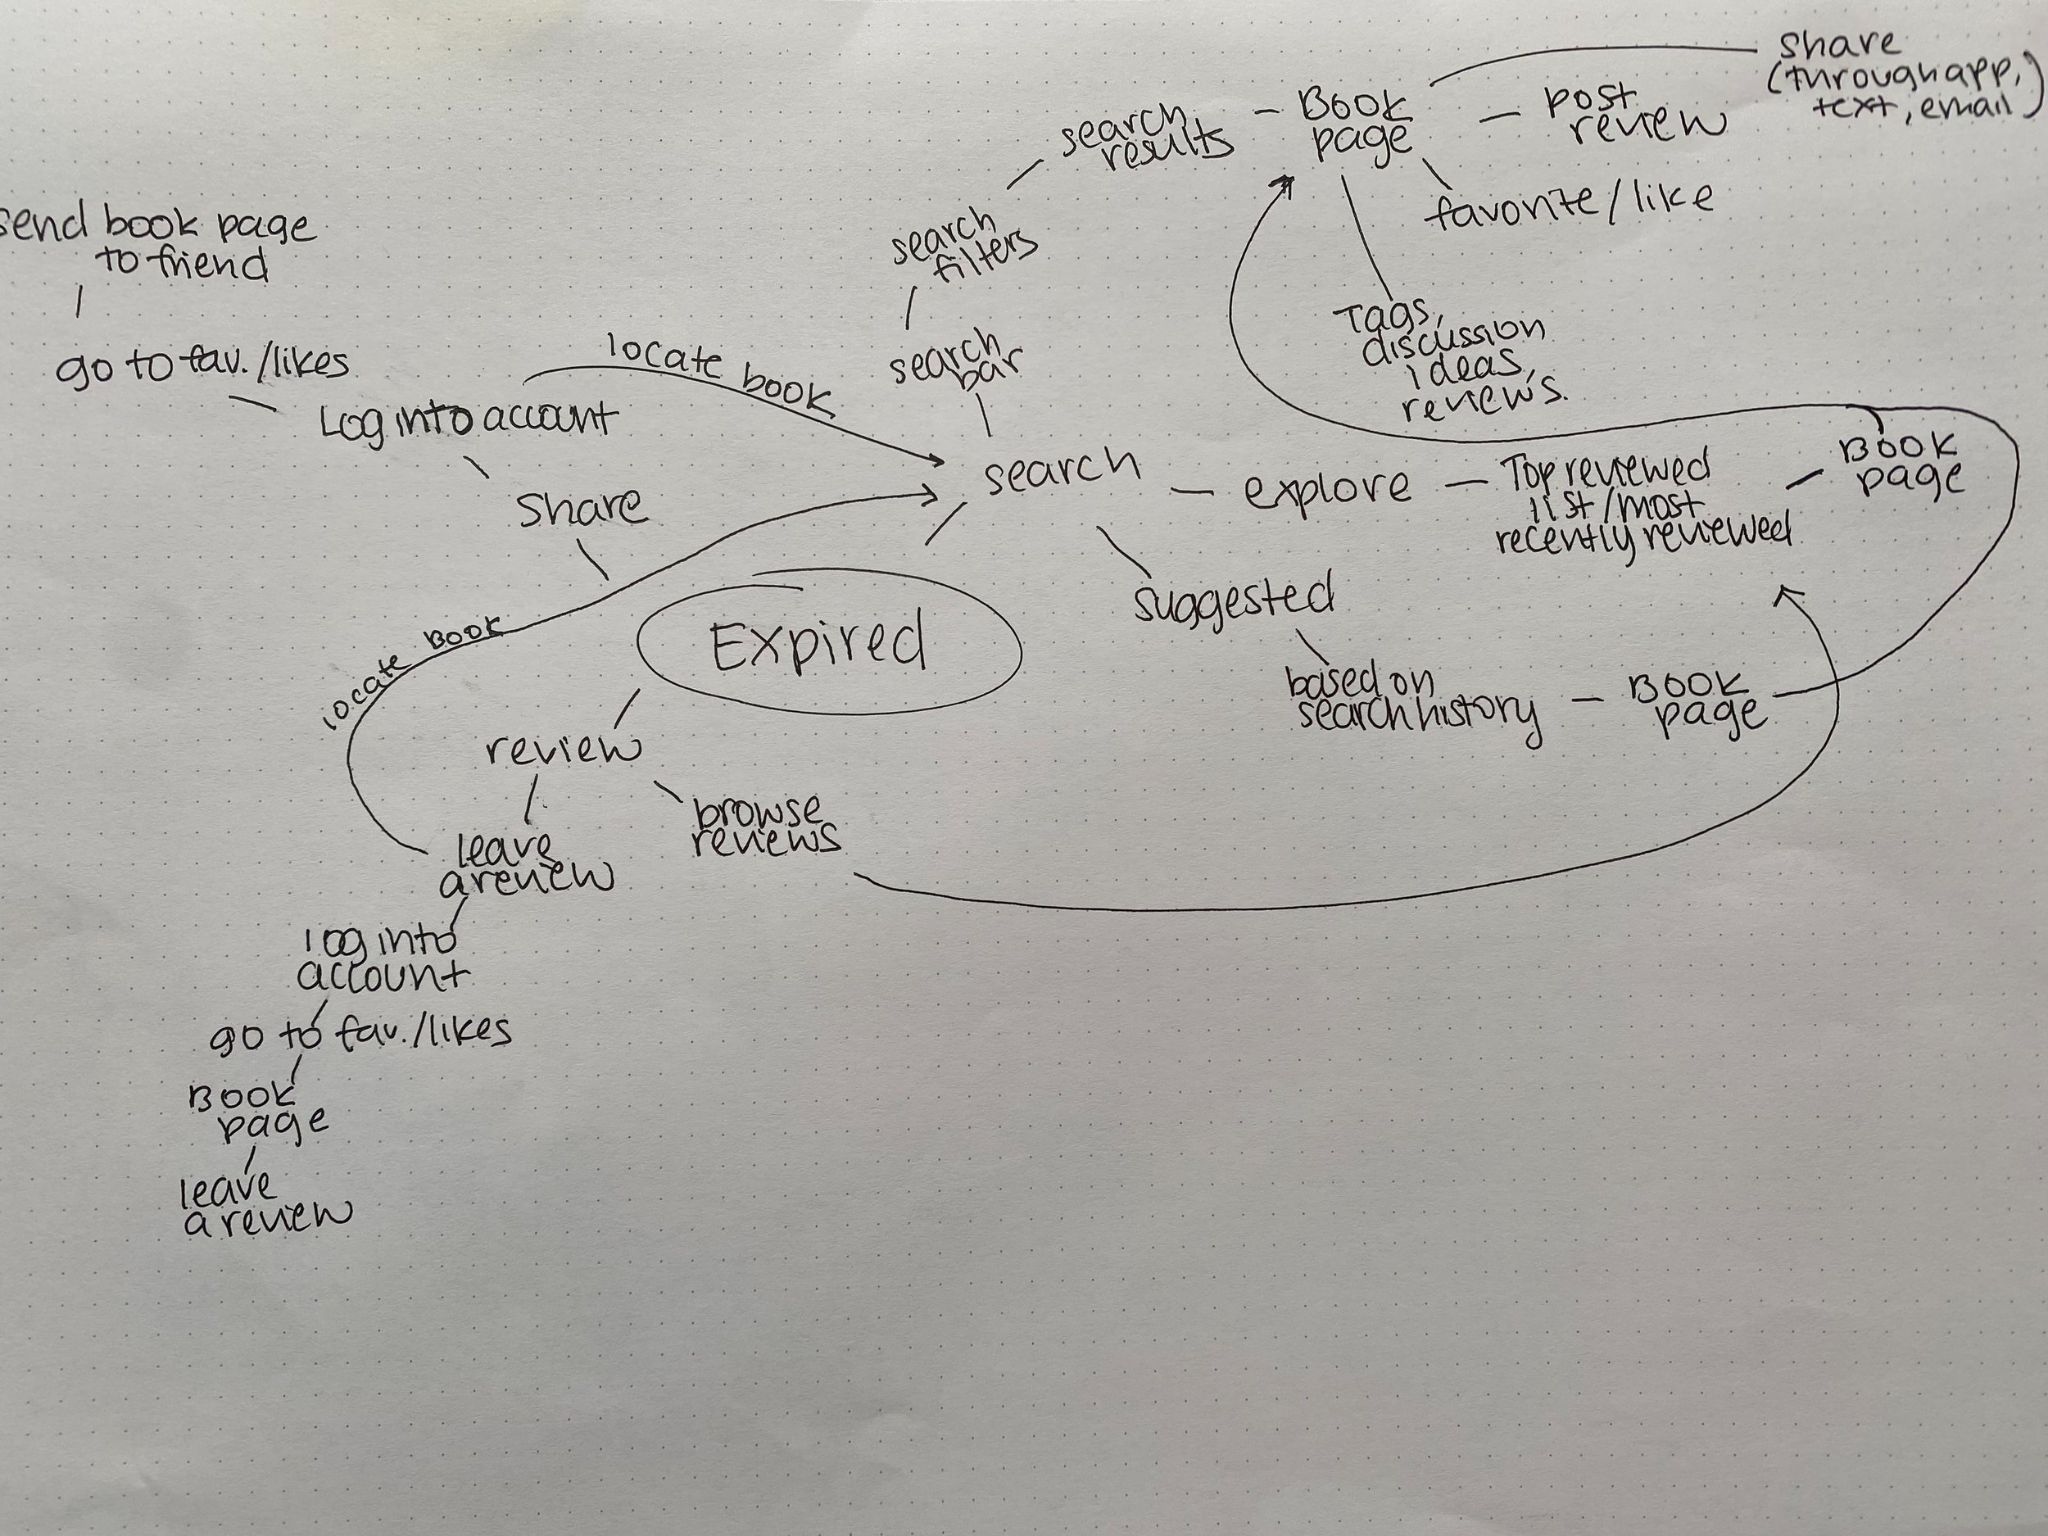 share
(through app,
text, email)
Book
page
post
review
search
results
favorite/like
send book page
to friend
search
filters
Tags,
discussion
ideas,
reviews.
go to fav./likes
locate book
search
bar
Log into account
search
explore
Top reviewed
list/most
recently reviewed
Book
page
share
suggested
locate book
Expired
based on
search history
Book
page
review
browse
reviews
leave
a review
log into
account
go to fav./likes
Book
page
leave
a review